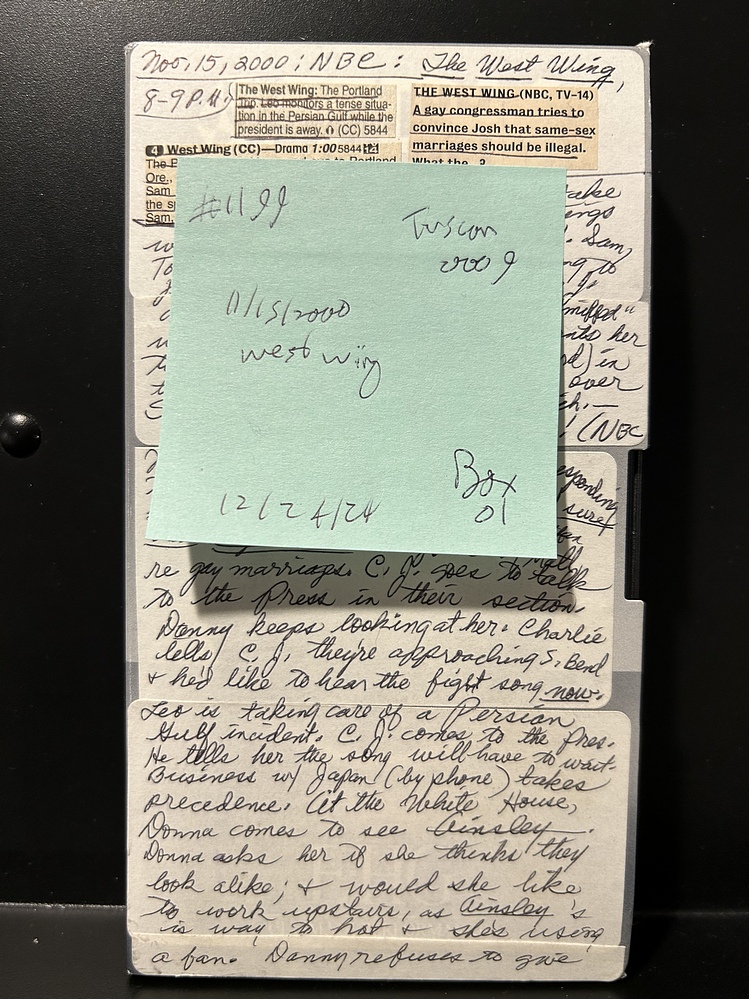 Nov. 15, 2000; NBC: The West Wing,
8-9 P.M.
The West Wing: The Portland
Trip. Leo monitors a tense situa-
tion in the Persian Gulf while the
president is away. (CC) 5844
THE WEST WING (NBC, TV-14)
A gay congressman tries to
convince Josh that same-sex
marriages should be illegal.
What the
4 West Wing (CC)—Drama 1:00 5844
The P to Portland
Ore.,
Sam
the sp
Sam,
take
Sam,
To to
miffed"
her
in
over
(NBC
#1199
Tuscon
2009
11/15/2000
west wing
12/24/24
Box
01
sponding
sure!
re gay marriages. C. J. goes to talk
to the Press in their section.
Danny keeps looking at her. Charlie
tells C. J. they're approaching S. Bend
& he'd like to hear the fight song now.
Leo is taking care of a Persian
Gulf incident. C. J. comes to the Pres.
He tells her the song will have to wait.
Business w/ Japan (by phone) takes
precedence. At the White House,
Donna comes to see Ainsley.
Donna asks her if she thinks they
look alike; & would she like
to work upstairs, as Ainsley's
is way to hot & she's using
a fan. Danny refuses to give